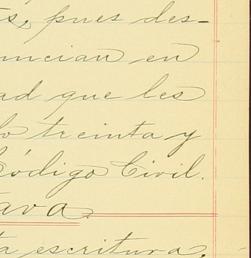 s, pues des-
uncian en
ad que les
lo treinta y
Código Civil.
ava.
ta escritura,